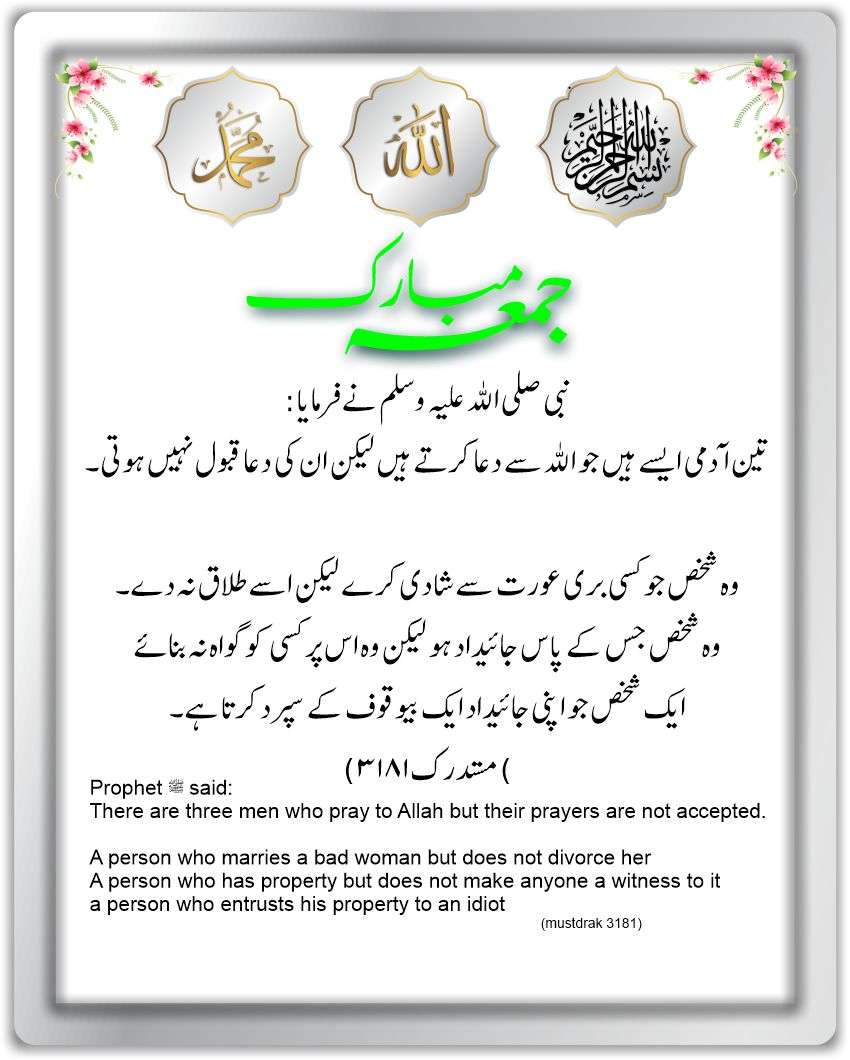 محمد
الله
بسم الله الرحمن الرحيم
جمعہ مبارک
نبی صلی اللہ علیہ وسلم نے فرمایا:
تین آدمی ایسے ہیں جو اللہ سے دعا کرتے ہیں لیکن ان کی دعا قبول نہیں ہوتی۔
وہ شخص جو کسی بری عورت سے شادی کرے لیکن اسے طلاق نہ دے۔
وہ شخص جس کے پاس جائیداد ہو لیکن وہ اس پر کسی کو گواہ نہ بنائے
ایک شخص جو اپنی جائیداد ایک بیوقوف کے سپرد کرتا ہے۔
) مستدرک ۳۱۸۱)
Prophet ﷺ said:
There are three men who pray to Allah but their prayers are not accepted.
A person who marries a bad woman but does not divorce her
A person who has property but does not make anyone a witness to it
a person who entrusts his property to an idiot
(mustdrak 3181)